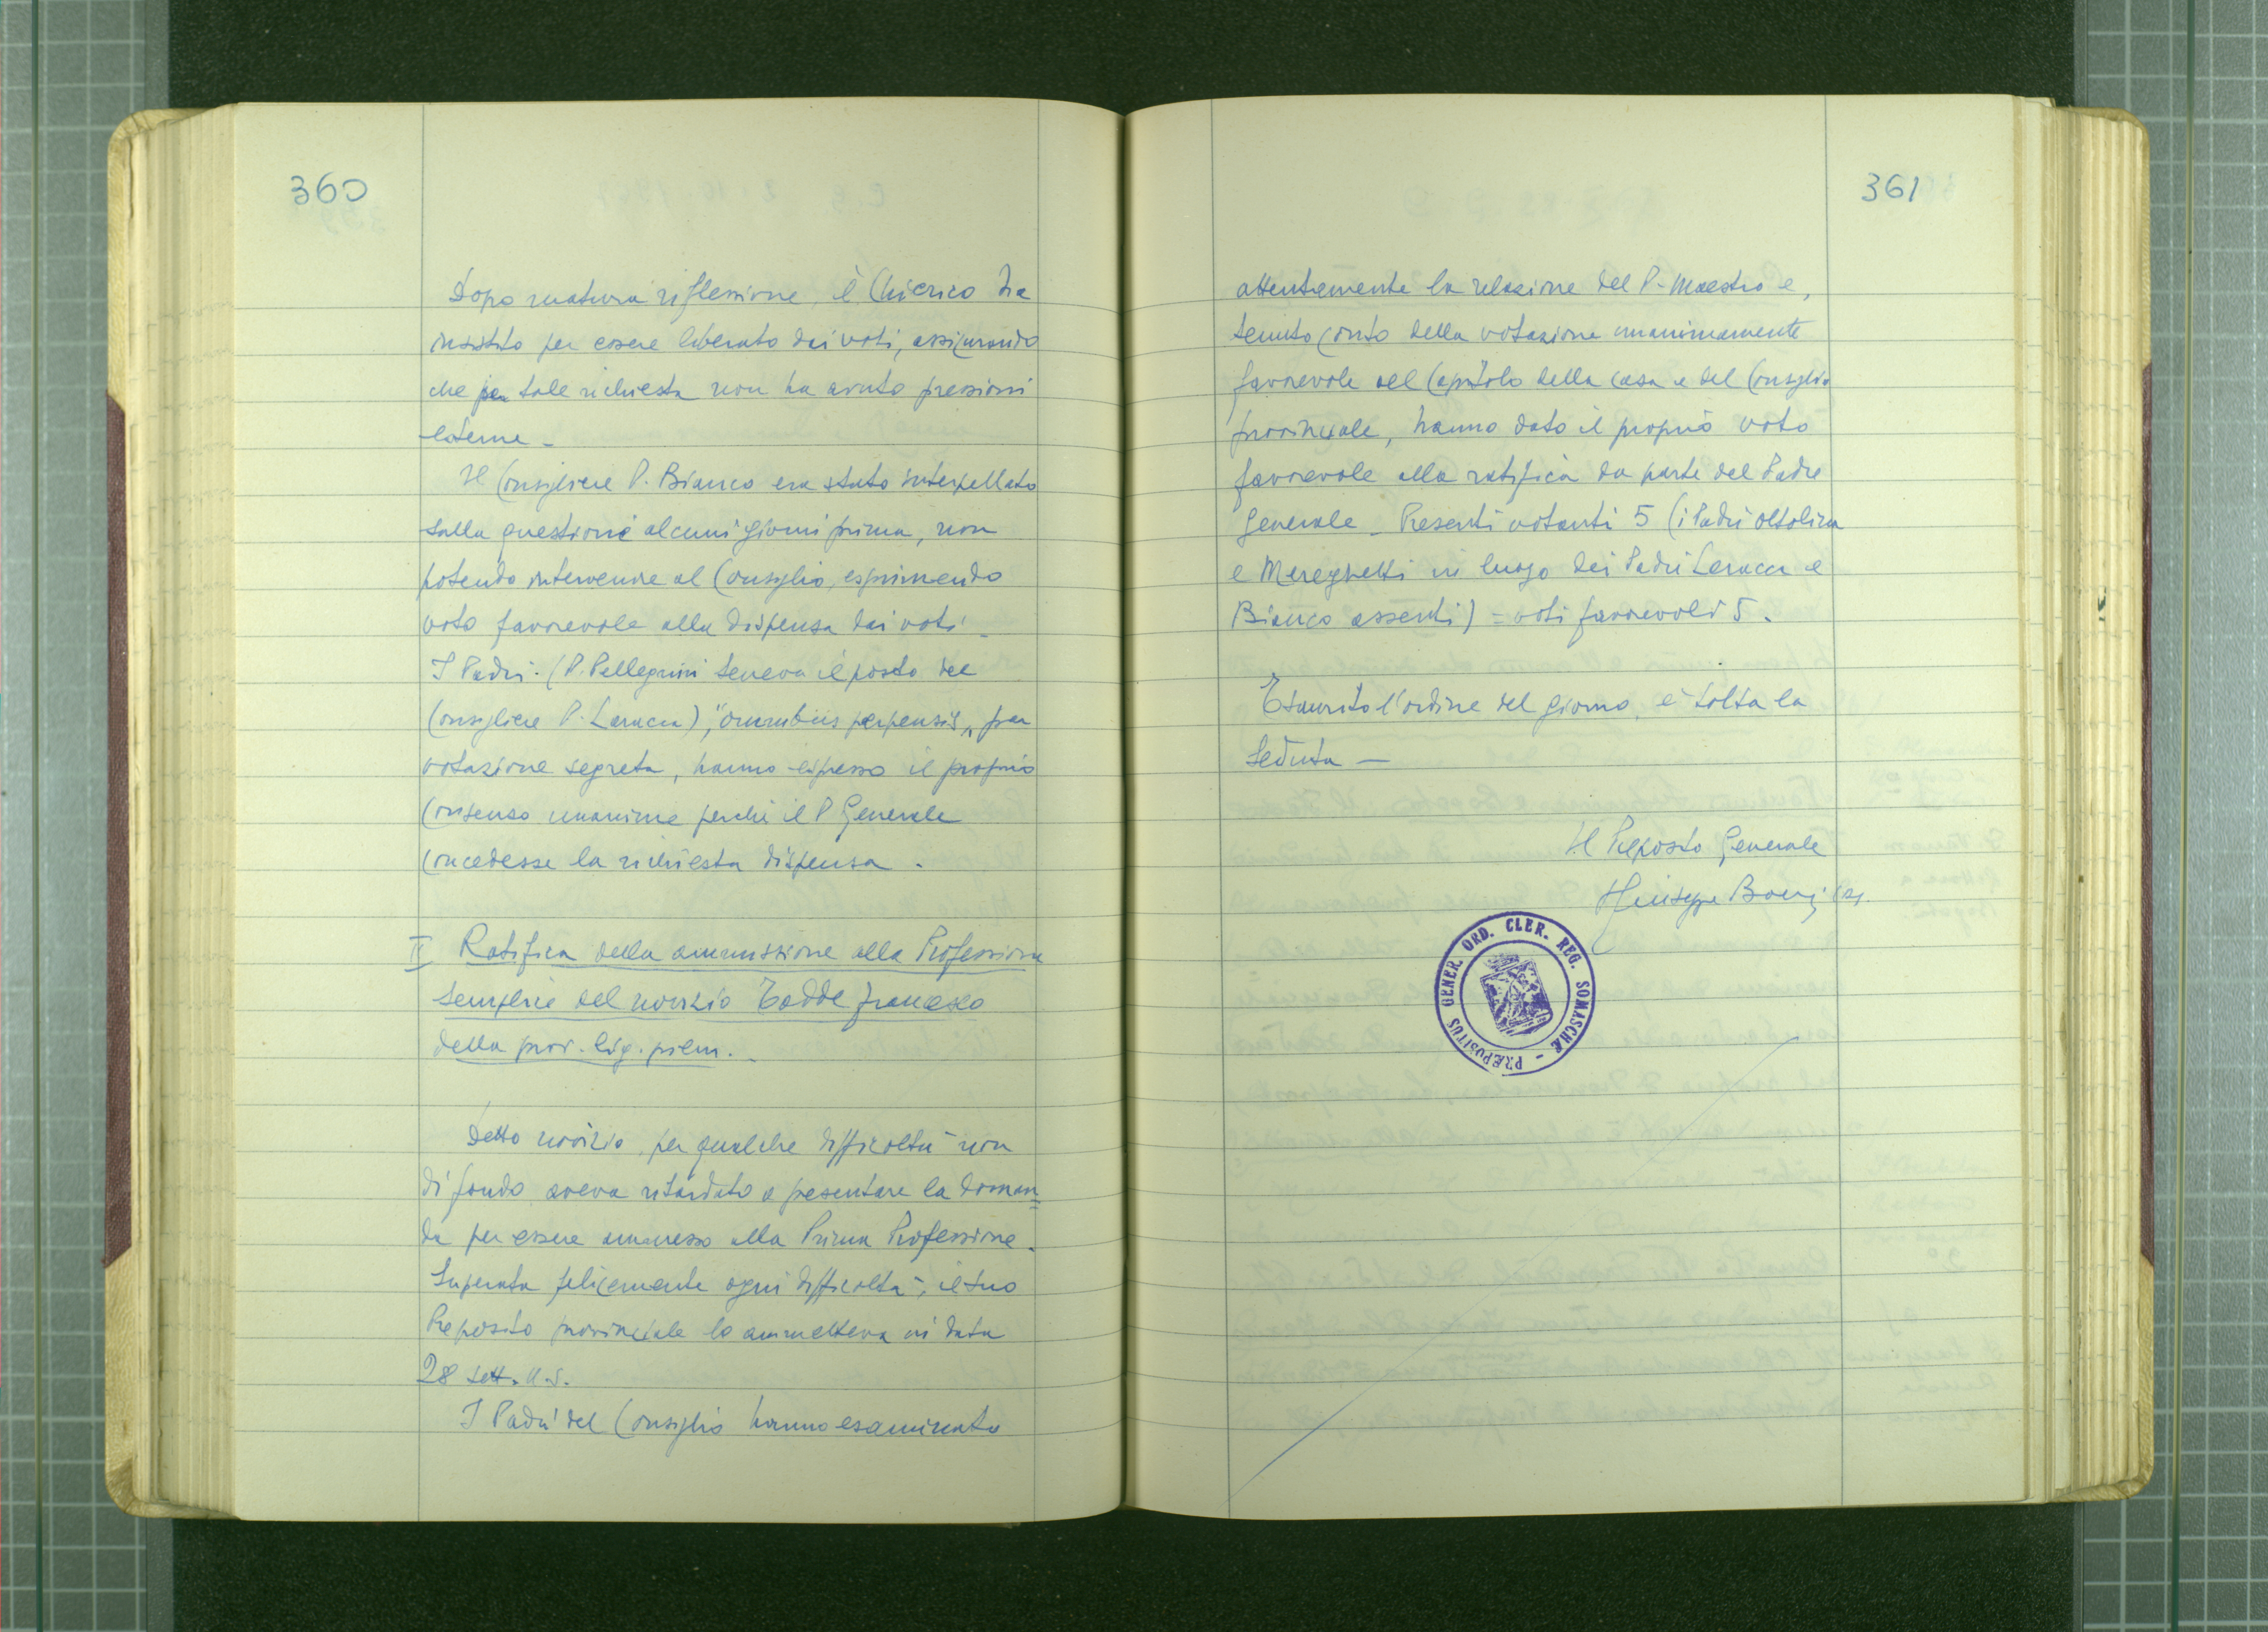 360
Dopo matura riflessione, il Chierico ha
insistito per essere liberato dai voti, assicurando
che per tale richiesta non ha avuto pressioni
esterne -
Il Consigliere P. Bianco era stato interpellato
sulla questione alcuni giorni prima, non
potendo intervenire al Consiglio, esprimendo
voto favorevole alla dispensa dai voti -
I Padri (P. Pellegrini teneva il posto del
Consigliere P. ), "omnibus perpensis", per
votazione segreta, hanno espresso il proprio
consenso unanime perché il P Generale
concedesse la richiesta dispensa .
II Ratifica della ammissione alla Professione
semplice del novizio Todde Francesco
della prov. lig. piem. -
Detto novizio, per qualche difficoltà non
di fondo aveva ritardato a presentare la doman=
da per essere ammesso alla Prima Professione.
Superata felicemente ogni difficoltà, il suo
Preposito provinciale lo ammetteva in data
28 sett. u.s.
I Padri del Consiglio hanno esaminato
361
attentamente la relazione del P. Maestro e,
tenuto conto della votazione unanimamente
favorevole del Capitolo della casa e del Consiglio
provinciale, hanno dato il proprio voto
favorevole alla ratifica da parte del Padre
Generale - Presenti votanti 5 (i Padri Oltolina
e Mereghetti in luogo dei Padri e
Bianco assenti) = voti favorevoli 5 .
Esaurito l'ordine del giorno, è tolta la
seduta -
Il Preposito Generale
Giuseppe Boeri crs.
PRÆPOSITUS GENER. ORD. CLER. REG. SOMASCHÆ -